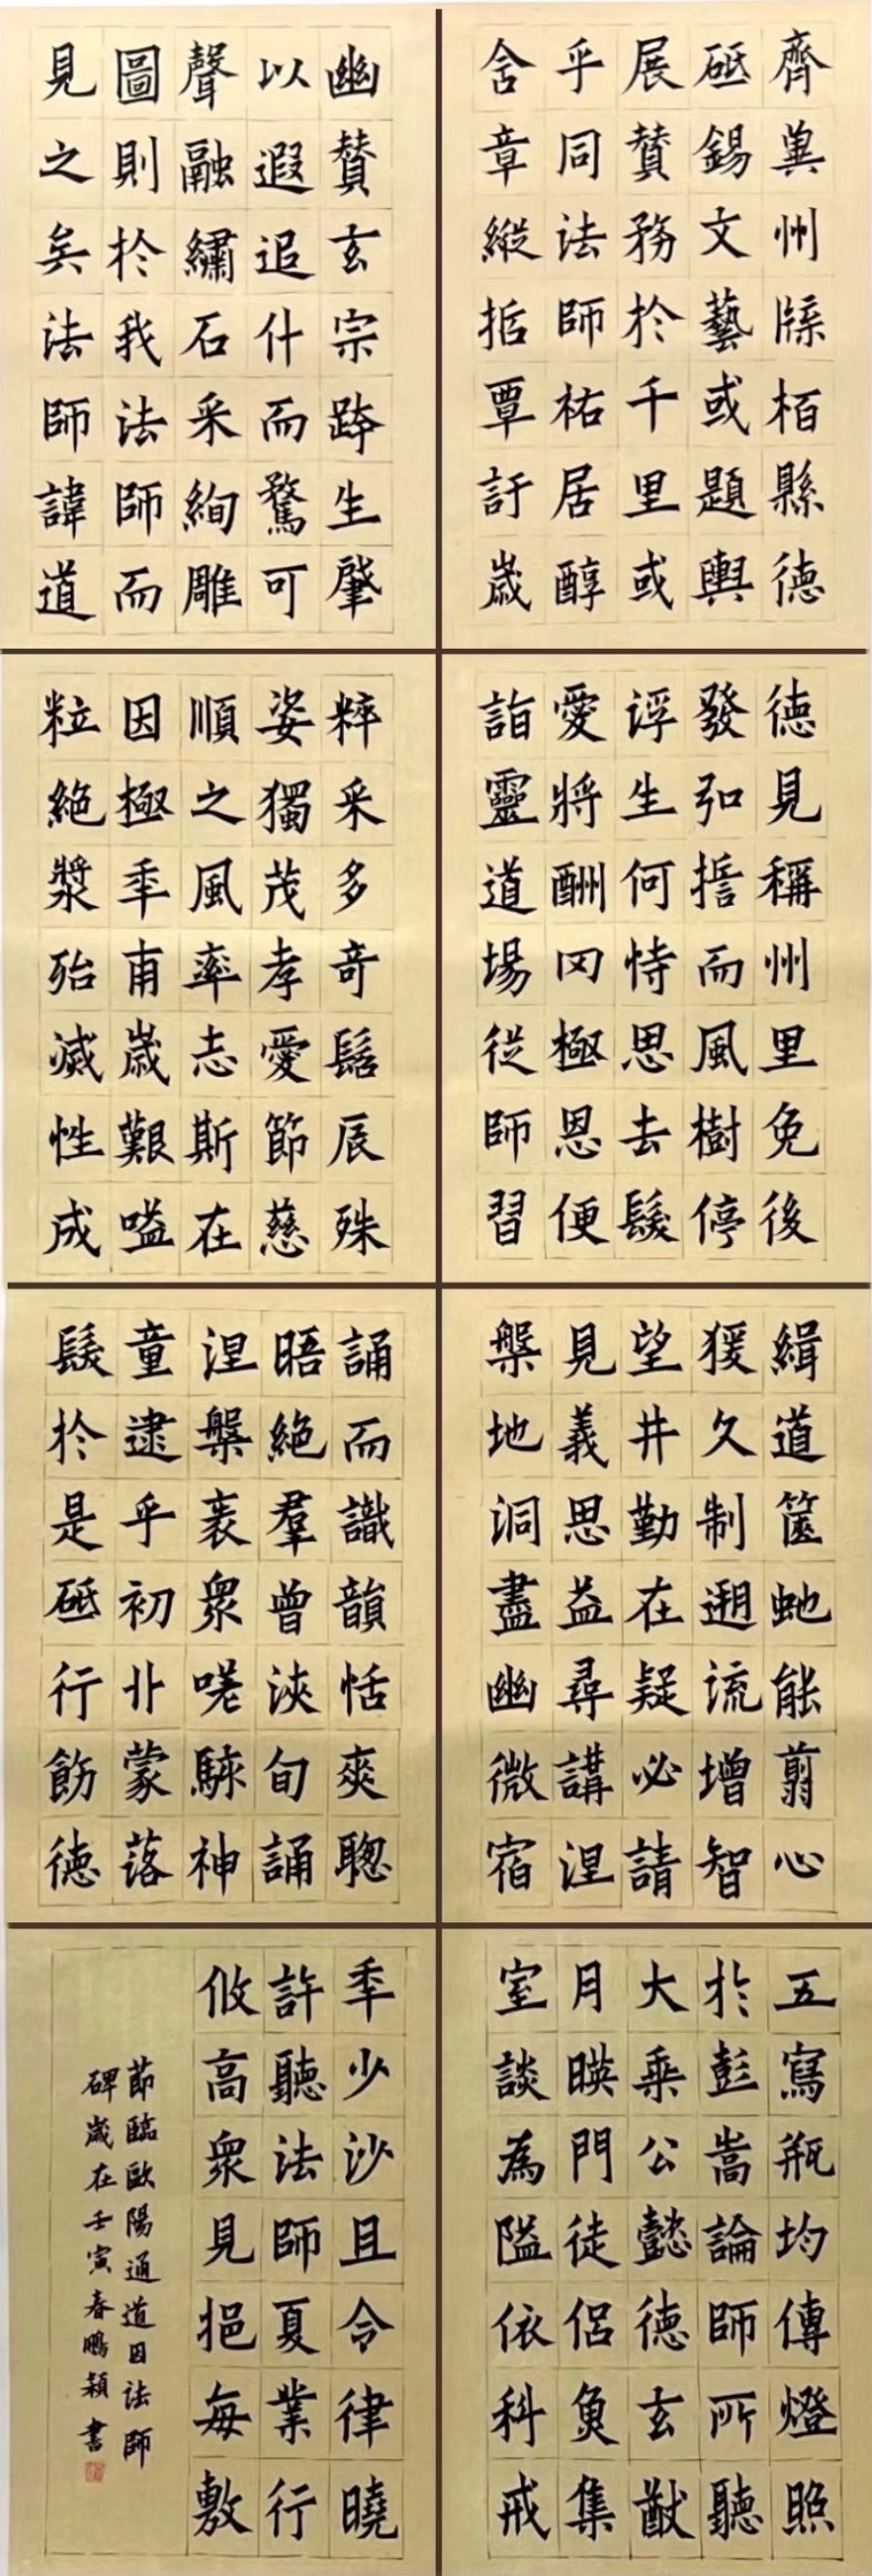 幽賛玄宗跨生肇
以遐追什而騖可
聲融繡石采絢雕
圖則於我法師而
見之矣法師諱道
齊冀州牒栢縣德
砥錫文藝或題輿
展賛務於千里或
乎同法師祐居醇
含章縱括覃訏歲
粹采多奇髫辰殊
姿獨茂孝愛節慈
順之風率志斯在
因極季甫歲艱嗌
粒絕漿殆滅性成
德見稱州里免後
發弘誓而風樹停
浮生何恃思去髮
愛將酬罔極恩便
詣靈道場從師習
誦而識韻恬爽聰
晤絕羣曾浹旬誦
涅槃袠衆咾騋神
童逮乎初丱蒙落
髮於是砥行飭德
緝道篋虵能翦心
猨久制遡流增智
望井勤在疑必請
見義思益尋講涅
槃地洞盡幽微宿
五寫瓶均傳燈照
於彭嵩論師所聽
大乘公懿德玄猷
月暎門徒侶魚集
室談為隘依科戒
季少沙且令律曉
許聽法師夏業行
攸高衆見挹每敷
節臨歐陽通道因法師
碑歲在壬寅春鵬穎書